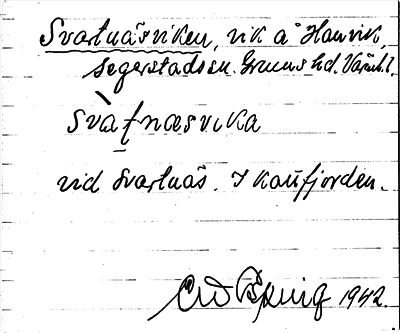 Svartnäsviken, vik å Hanvik,
Segerstads sn. Grums hd. Värml.
Svàt̠næsvika
vid Svartnäs. I Kattfjorden.
1942.